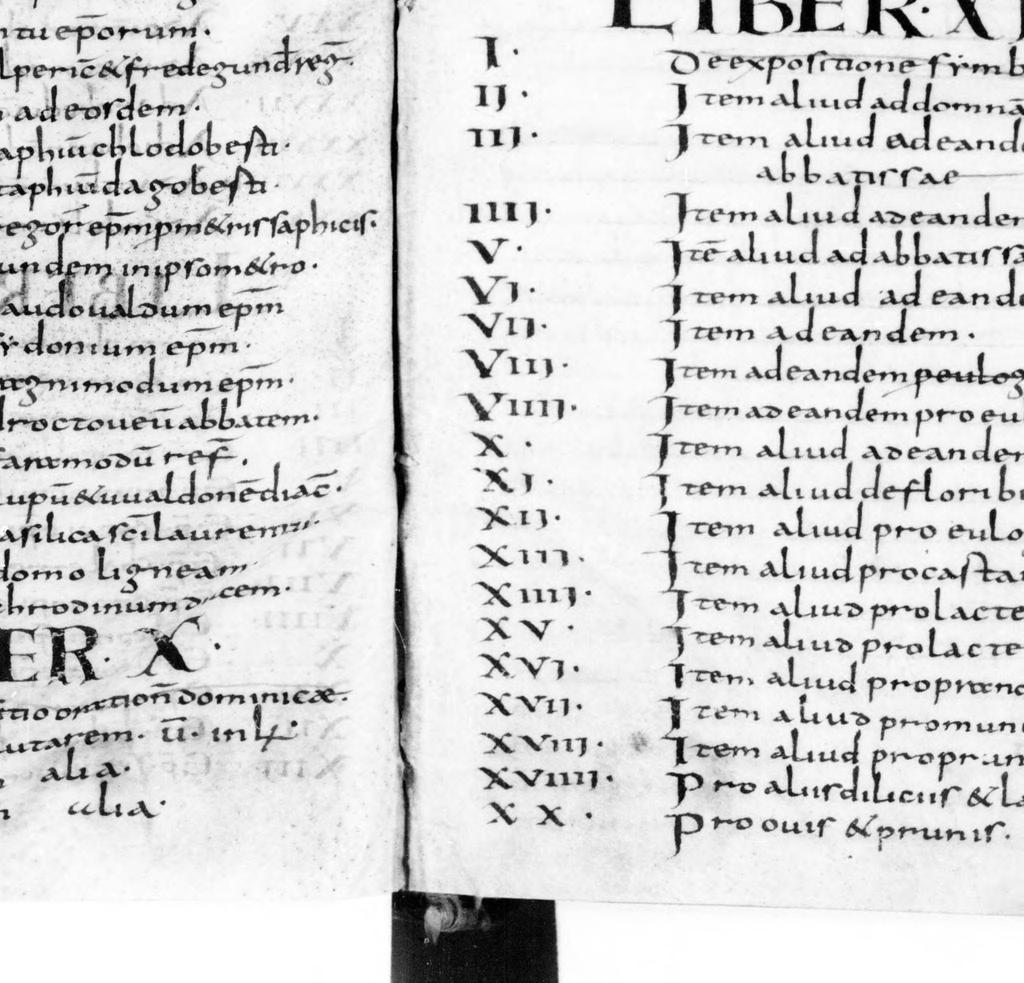 ntu ep̄orum·
lperic̄ & fredegund̄ reḡ·
ad eosdem·
aphiū chlodobesti·
taphiū dagobesti·
regor̄ ep̄m pm̄ & ris saphicis·
undem in ipso m&ro·
audoualdum ep̄m
fydonium ep̄m·
ragnimodum ep̄m·
droctoueū abbatem·
faramodū ref̄·
lupū & uualdonē diac̄·
asilica sc̄i laurenti·
domo ligneam
chrodinum ducem·
ER· X·
itio oration̄ dominicæ·
utarem· ū· in
alia·
alia·
LIBER· XI
I· De expositione symb
II· Item aliud ad domnā
III· Item aliud ad eande
abbatissae
IIII· Item aliud ad eanden
V· Itē aliud ad abbatissa
VI· Item aliud ad eande
VII· Item ad eandem·
VIII· Item ad eandem peulog
VIIII· Item ad eandem pro eu
X· Item aliud ad eander
XI· Item aliud de floribu
XII· Item aliud pro eulo
XIII· Item aliud pro castan
XIIII· Item aliud pro lacte
XV· Item aliud pro lacte
XVI· Item aliud pro prand
XVII· Item aliud pro mun
XVIII· Item aliud pro prun
XVIIII· Pro aliis diliciis & la
XX· Pro ouis & prunis·